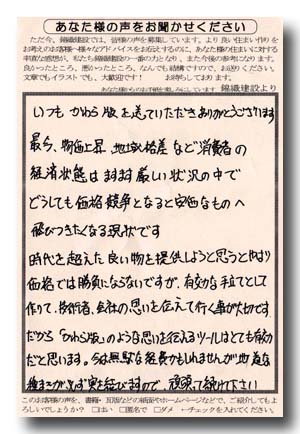 あなた様の声をお聞かせください
ただ今、錦織建設では、皆様の声を募集しています。より良い住まい作りを
お考えのお客様へ様々なアドバイスをお伝えするのに、あなた様の住まいに対する
率直な感想が、私たち錦織建設の一番の力となり、また今後の参考になります。
良かったところ、悪かったところ、なんでも結構ですので、お送りください。
文章でもイラストでも、大歓迎です！ お待ちしております。
錦織建設より
いつも かわら版を送っていただきありがとうございます
最今、物価上昇、地域格差など消費者の
経済状態は ますます厳しい状況の中で
どうしても価格競争となると安価なものへ
飛びつきたくなる現状です
時代を超えた良い物を提供しようと思うとやはり
価格では勝負にならないですが、有効な手立てとして
作りて、技術者、会社の思いを伝えて行く事が大切です
だから「かわら版」のような思いを伝えるツールはとても有効
だと思います。今は無駄な経費かもしれませんが地道な
種まきが必ず実を結びますので、頑張って続けて下さい
このお客様の声を、書籍・瓦版などの紙面やホームページなどで、ご紹介してもよ
ろしいでしょうか？ □はい □匿名で □ダメ ←チェックを入れてください。